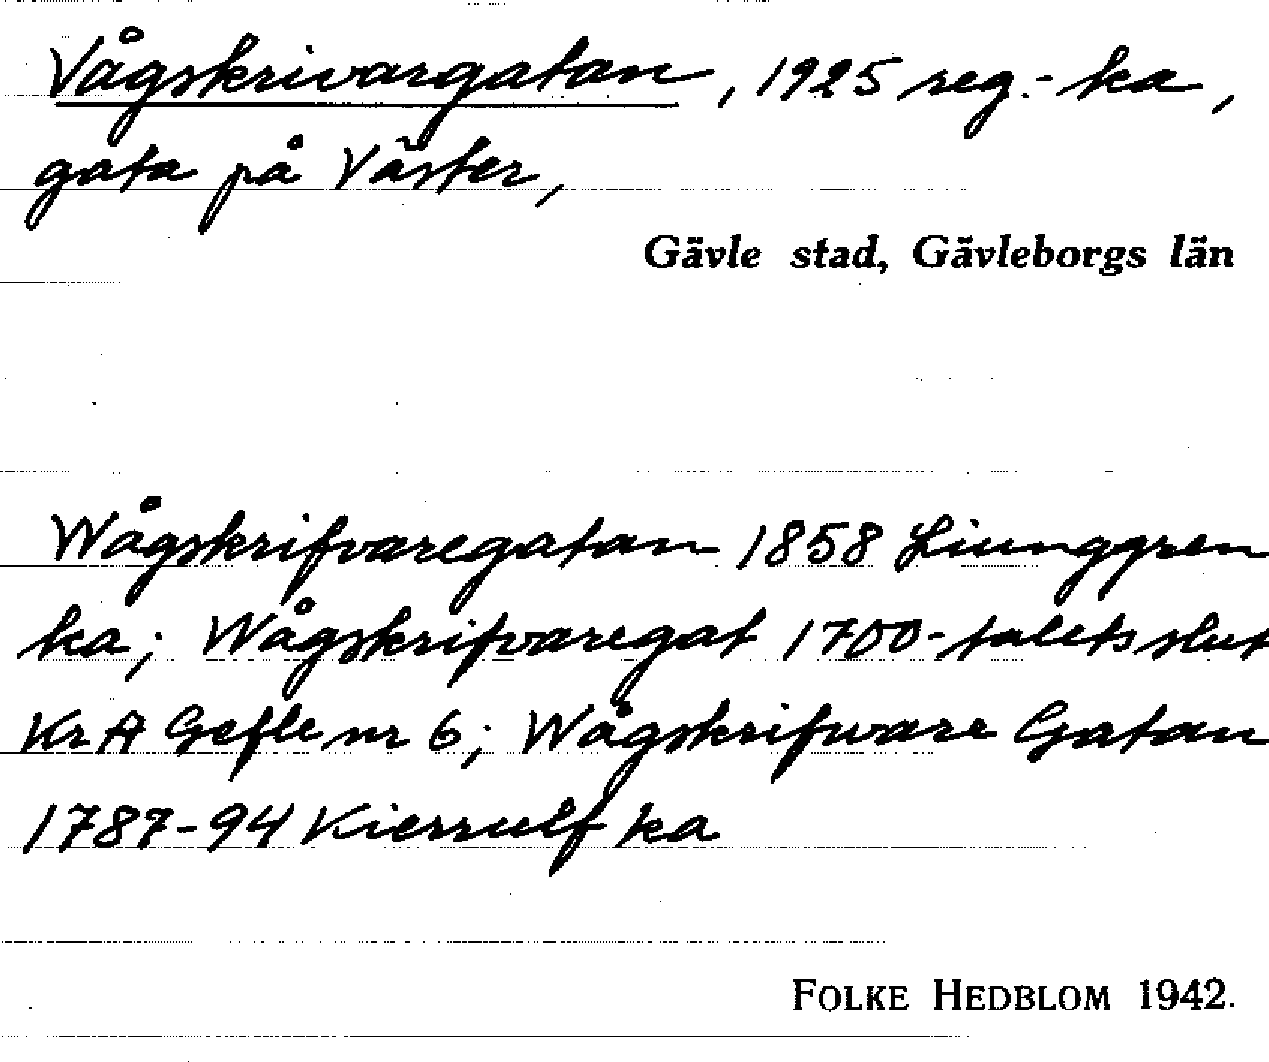 Vågskrivargatan, 1925 reg.-ka,
gata på Väster,
Gävle stad, Gävleborgs län
Wågskrifvaregatan 1858 Liunggren
ka; Wågskrifvaregat 1700-talets slut
KrA Gefle nr 6; Wågskrifware Gatan
1787-94 Kierrulf ka
FOLKE HEDBLOM 1942.